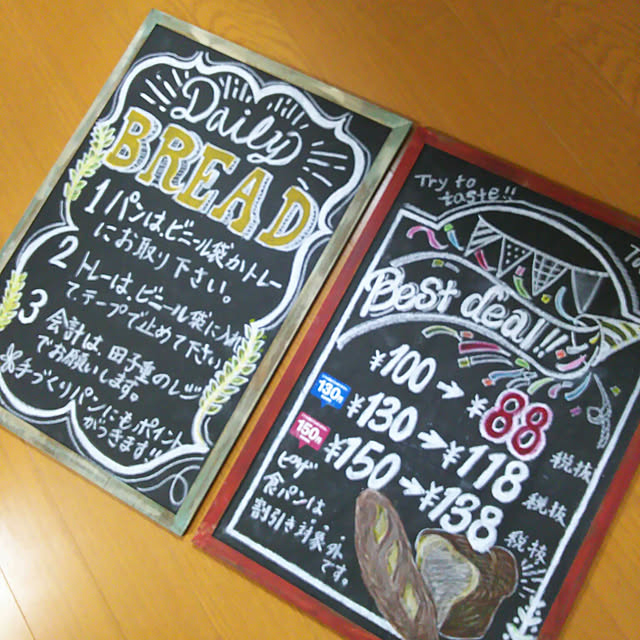 Daily
BREAD
1 パンは、ビニール袋かトレー
にお取り下さい。
2 トレーは、ビニール袋に入れ
て、テープで止めて下さい
3 会計は、田子重のレジ
でお願いします。
※手づくりパンにもポイント
がつきます!!
Try to
taste!!
Best deal!!
¥100→¥88 税抜
130円
¥130→¥118 税抜
150円
¥150→¥138 税抜
ピザ
食パンは、
割引き対象外
です。